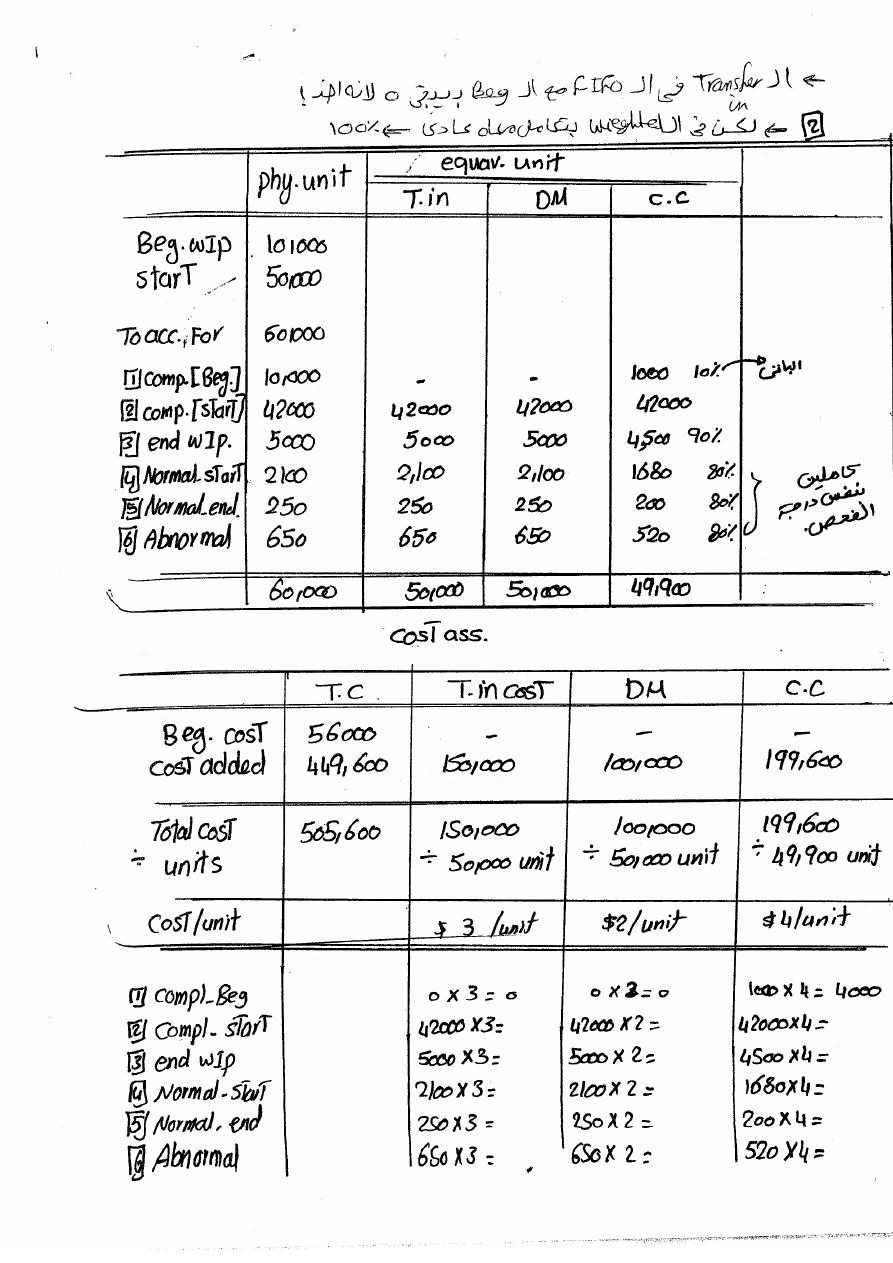 ← ال Transfer in في ال FIFO مع ال Beg بيبقى 0 لانه
2 ← لكن في ال Wieghted بتتعامل معاه عادى ← 100%
phy. unit equav. unit
T. in DM C.C
Beg. WIP 10,000
start 50,000
To acc., For 60,000
1 comp. [Beg.] 10,000 - - 1000 10% الباقى
2 comp. [start] 42000 42000 42000 42000
3 end WIP. 5000 5000 5000 4,500 90%
4 Normal_start 2100 2,100 2,100 1680 80%
5 Normal_end. 250 250 250 200 80%
6 Abnormal 650 650 650 520 80%
كاملين
بنفس درجة
الفحص.
60,000 50,000 50,000 49,900
Cost ass.
T.C. T. in cost DM C.C
Beg. cost 56000 - - -
cost added 449,600 150,000 100,000 199,600
Total cost 505,600 150,000 100,000 199,600
÷ units ÷ 50,000 unit ÷ 50,000 unit ÷ 49,900 unit
Cost/unit $ 3 /unit $2/unit $4/unit
1 Compl_Beg 0 X 3 = 0 0 X 2 = 0 1000 X 4 = 4000
2 Compl_start 42000 X3= 42000 X2 = 42000x4=
3 end WIP 5000 X3= 5000 X 2= 4500 x4=
4 Normal_start 2100 X 3= 2100 X 2 = 1680x4=
5 Normal. end 250 X3 = 250 X 2 = 200 X4=
6 Abnormal 650 X3 = 650 X 2 = 520 X4=